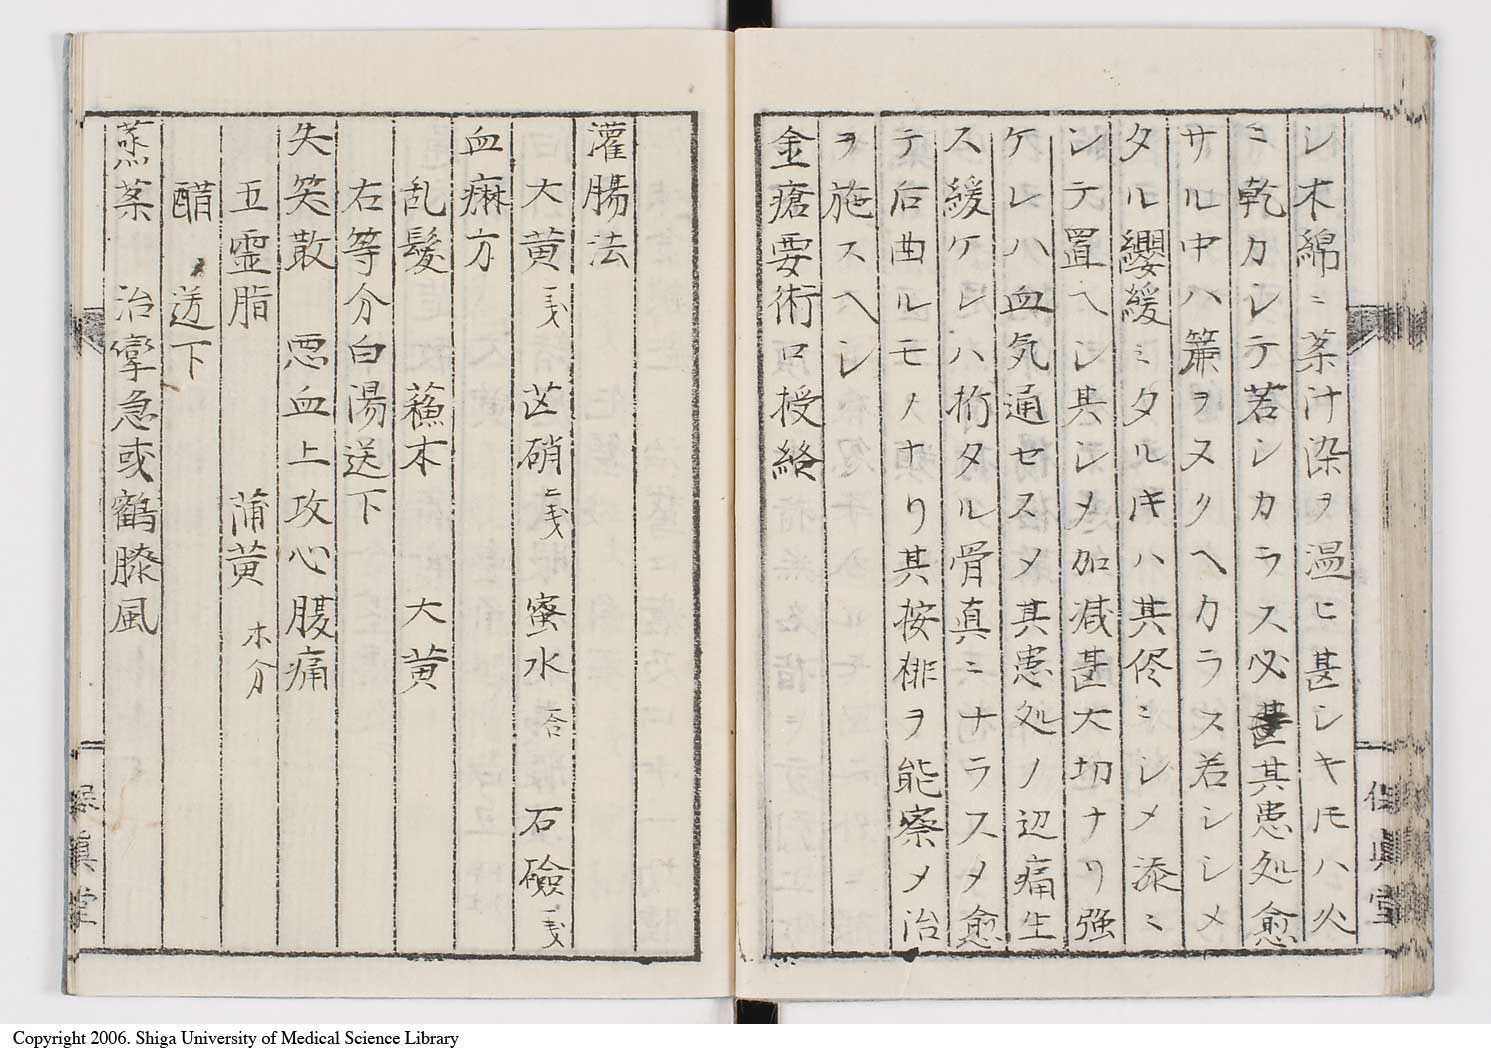 シ木綿ニ薬汁染ヲ温ヒ甚シキモハ火
ミ乾カシテ若シカラス必甚其患処愈
サル中ハ簾ヲヌクヘカラス若シシメ
タル纓緩ミタルキハ其侭ミシメ添ミ
ンテ置ヘシ其シメ加减甚大切ナリ強
ケレハ血気通セスメ其患処ノ辺痛生
ス緩ケレハ折タル骨真ミナラスタ愈
テ后曲ルモノナリ其按排ヲ能察メ治
ヲ施スヘシ
金瘡要術口授終
保真堂
灌腸法
大黄 一戋 芒硝 二戋 蜜水 合 石鹼 一戋
血痳方
乱髪 蘓木 大黄
右等分白湯送下
失笑散 悪血上攻心腹痛
五霊脂 蒲黄 木分
醋 送下
蒸薬 治攣急或鶴膝風
保真堂
Copyright 2006. Shiga University of Medical Science Library